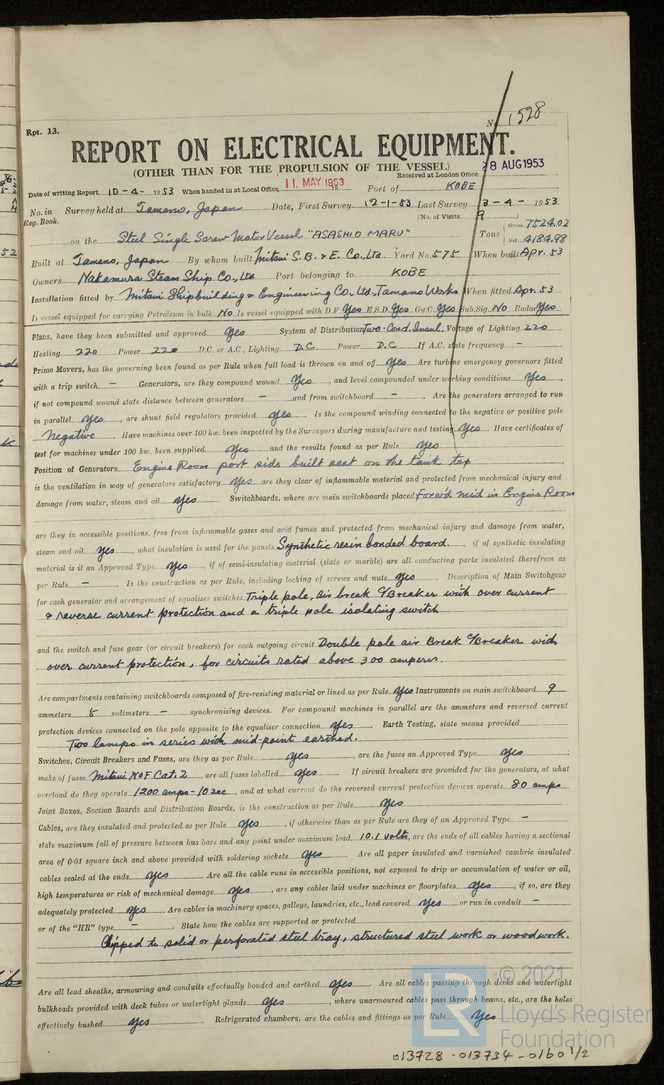 Rpt. 13.
No. 1528
REPORT ON ELECTRICAL EQUIPMENT.
(OTHER THAN FOR THE PROPULSION OF THE VESSEL)
8 AUG 1953
Received at London Office
Date of writing Report 10-4- 1953 When handed in at Local Office 11. MAY 1953 Port of KOBE
No. in Reg. Book. Survey held at Tamano, Japan Date, First Survey 12-1-53 Last Survey 3-4- 1953
(No. of Visits 9 )
on the Steel Single Screw Motor Vessel "ASASHIO MARU" Tons Gross 7524.02 Net 4184.98
Built at Tamano, Japan By whom built Mitsui S.B. & E. Co., Ltd. Yard No. 575 When built Apr. 53
Owners Nakamura Steam Ship Co., Ltd Port belonging to KOBE
Installation fitted by Mitsui Shipbuilding & Engineering Co., Ltd., Tamano Works When fitted Apr. 53
Is vessel equipped for carrying Petroleum in bulk No Is vessel equipped with D.F. Yes E.S.D. Yes Gy.C. Yes Sub.Sig. No Radar Yes
Plans, have they been submitted and approved Yes System of Distribution Two-Cond. Insul. Voltage of Lighting 220
Heating 220 Power 220 D.C. or A.C., Lighting D.C Power D.C If A.C. state frequency -
Prime Movers, has the governing been found as per Rule when full load is thrown on and off Yes Are turbine emergency governors fitted
with a trip switch - Generators, are they compound wound Yes, and level compounded under working conditions Yes,
if not compound wound state distance between generators - and from switchboard - Are the generators arranged to run
in parallel Yes, are shunt field regulators provided Yes Is the compound winding connected to the negative or positive pole
Negative Have machines over 100 kw. been inspected by the Surveyors during manufacture and testing Yes Have certificates of
test for machines under 100 kw. been supplied Yes and the results found as per Rule Yes
Position of Generators Engine Room port side built seat on the tank top
is the ventilation in way of generators satisfactory Yes are they clear of inflammable material and protected from mechanical injury and
damage from water, steam and oil Yes Switchboards, where are main switchboards placed Forwd mid in Engine Room
are they in accessible positions, free from inflammable gases and acid fumes and protected from mechanical injury and damage from water,
steam and oil yes, what insulation is used for the panels Synthetic resin bonded board. if of synthetic insulating
material is it an Approved Type Yes, if of semi-insulating material (slate or marble) are all conducting parts insulated therefrom as
per Rule - Is the construction as per Rule, including locking of screws and nuts Yes Description of Main Switchgear
for each generator and arrangement of equaliser switches Triple pole, Air break C/Breaker with over current
& reverse current protection and a triple pole isolating switch
and the switch and fuse gear (or circuit breakers) for each outgoing circuit Double pole air Break C/Breaker with
over current protection, for circuits rated above 300 amperes.
Are compartments containing switchboards composed of fire-resisting material or lined as per Rule Yes Instruments on main switchboard 9
ammeters 5 voltmeters - synchronising devices. For compound machines in parallel are the ammeters and reversed current
protection devices connected on the pole opposite to the equaliser connection Yes Earth Testing, state means provided
Two lamps in series with mid-point earthed.
Switches, Circuit Breakers and Fuses, are they as per Rule Yes, are the fuses an Approved Type Yes
make of fuses Mitsui XOF Cat. 2, are all fuses labelled Yes If circuit breakers are provided for the generators, at what
overload do they operate 1200 amps-10 sec., and at what current do the reversed current protective devices operate 80 amps
Joint Boxes, Section Boards and Distribution Boards, is the construction as per Rule Yes
Cables, are they insulated and protected as per Rule Yes, if otherwise than as per Rule are they of an Approved Type -
state maximum fall of pressure between bus bars and any point under maximum load 10.1 volts, are the ends of all cables having a sectional
area of 0·01 square inch and above provided with soldering sockets Yes Are all paper insulated and varnished cambric insulated
cables sealed at the ends Yes Are all the cable runs in accessible positions, not exposed to drip or accumulation of water or oil,
high temperatures or risk of mechanical damage Yes, are any cables laid under machines or floorplates Yes, if so, are they
adequately protected Yes Are cables in machinery spaces, galleys, laundries, etc., lead covered Yes or run in conduit -
or of the "HR" type - State how the cables are supported or protected
Clipped to solid or perforated steel tray, structured steel work or woodwork.
Are all lead sheaths, armouring and conduits effectually bonded and earthed Yes Are all cables passing through decks and watertight
bulkheads provided with deck tubes or watertight glands Yes where unarmoured cables pass through beams, etc., are the holes
effectively bushed Yes Refrigerated chambers, are the cables and fittings as per Rule Yes
© 2021
LR
Lloyd's Register
Foundation
013728-013734-0160 1/2